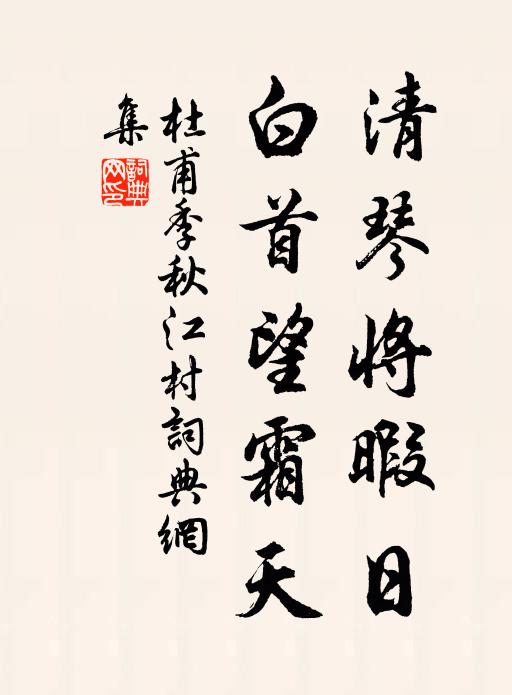 清琴將暇日
白首望霜天
杜甫季秋江村詞典網
集
詞典網印